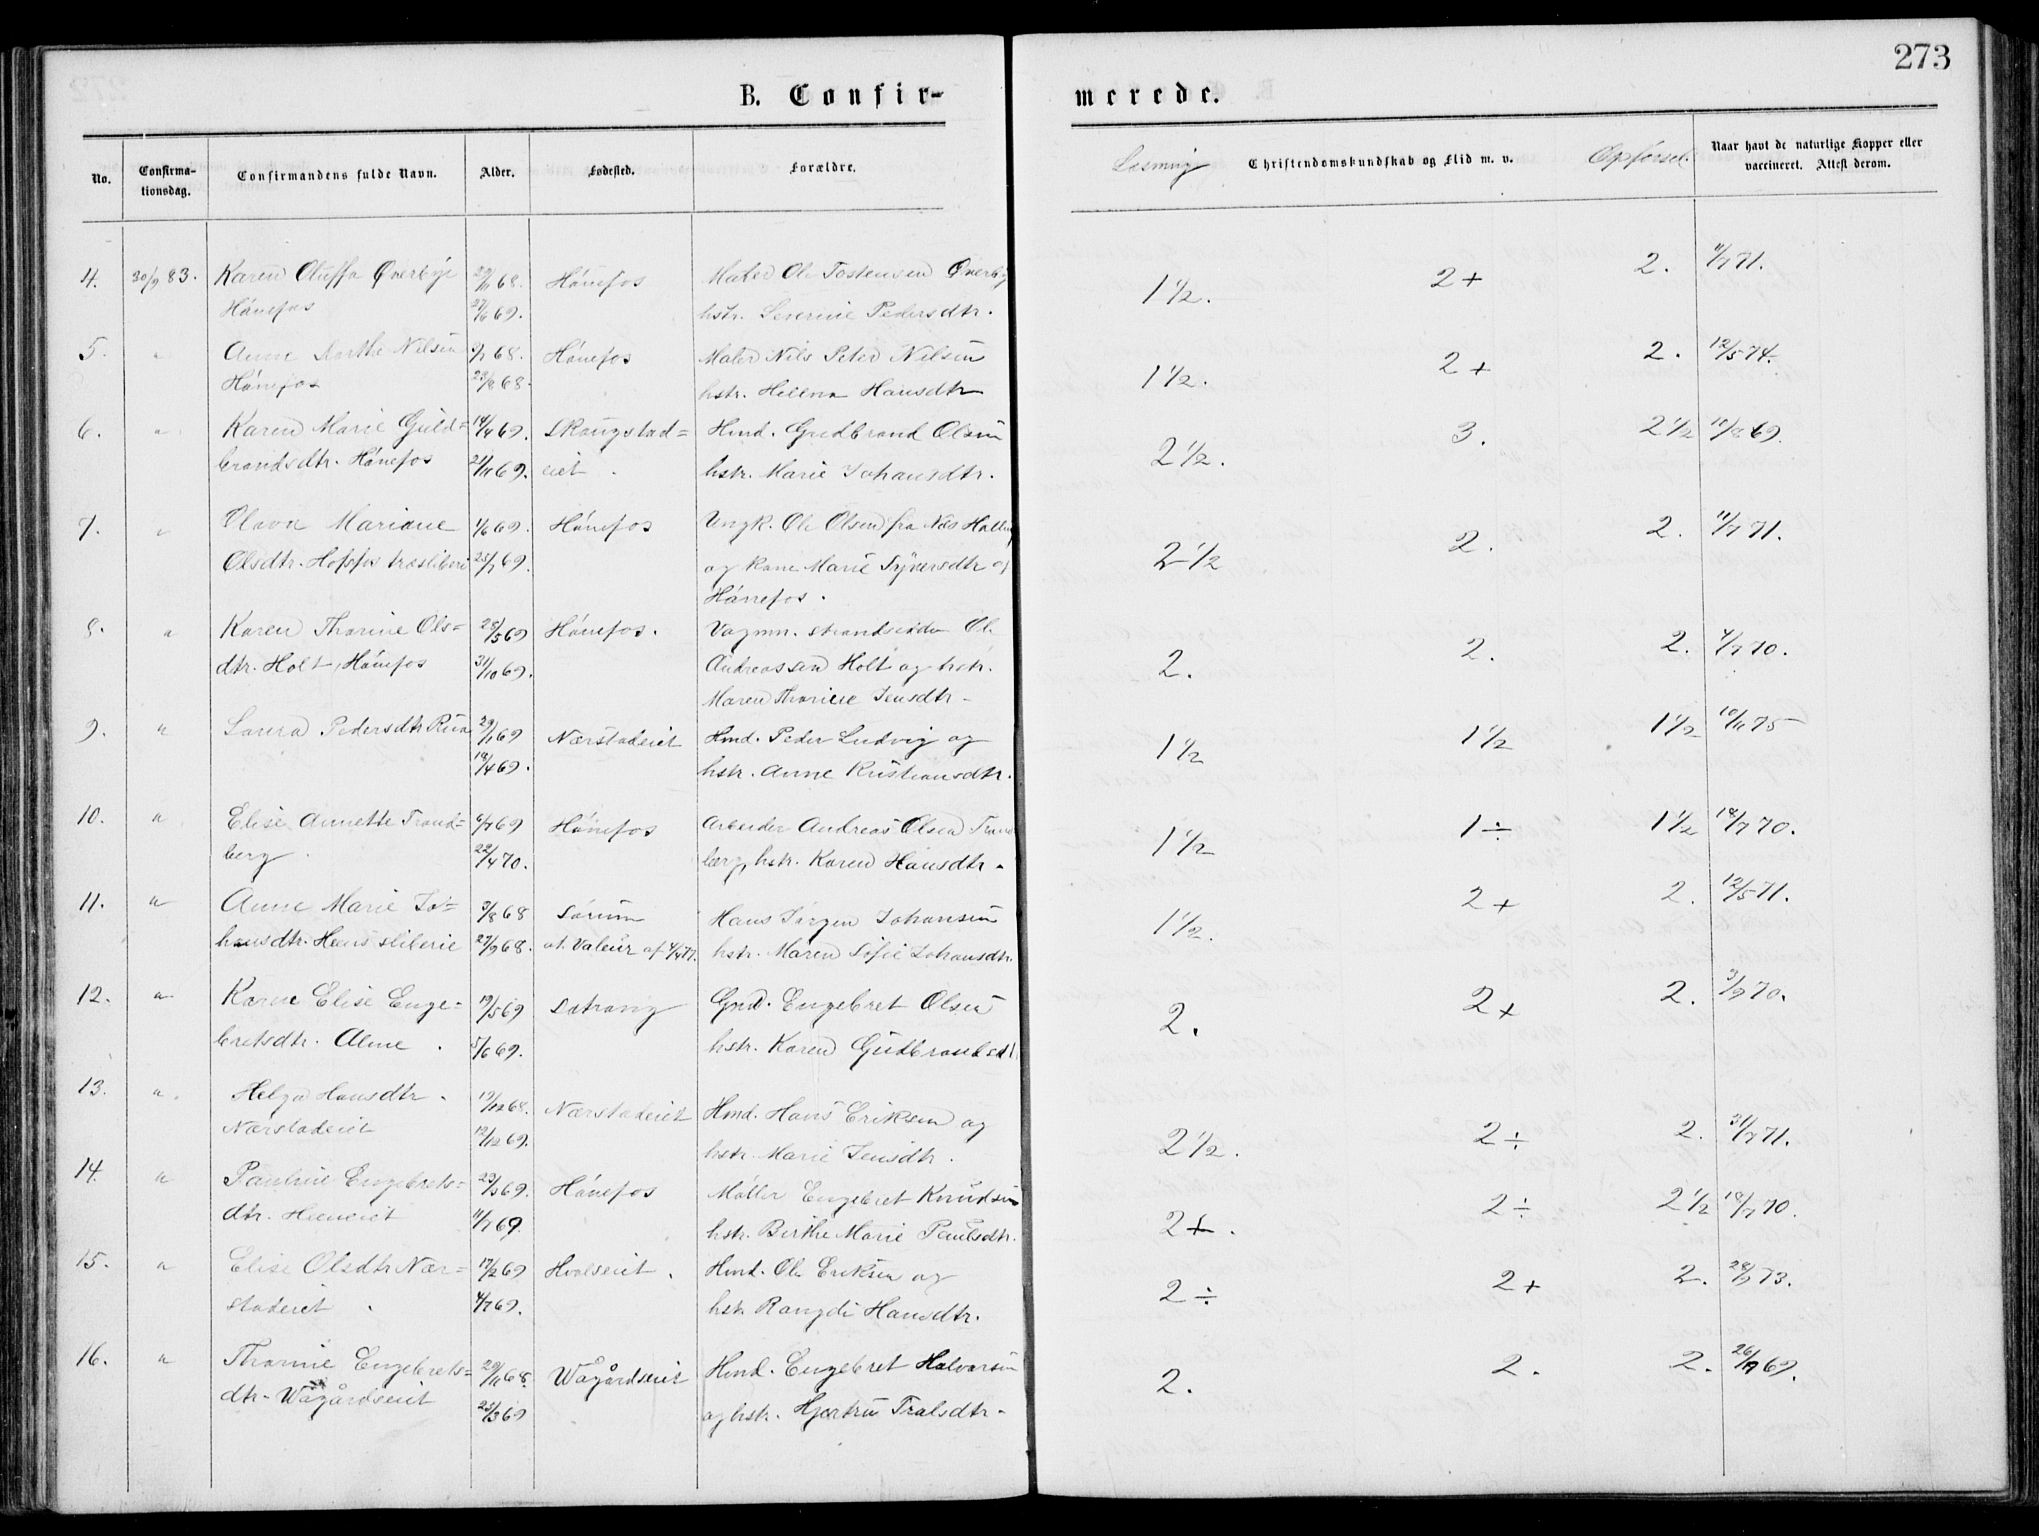 273
B. Confir- merede.
No. Confirma- tionsdag. Confirmandens fulde Navn. Alder. Fødested. Forældre. Læsning Christendomskundskab og Flid m. v. Opførsel. Naar havt de naturlige Kopper eller vaccineret. Attest derom.
4. 30/9 83. Karen Oluffa Øverbye 29/11 68. Hønefos Maler Ole Tostensen Øverby 1½. 2+ 2. 11/7 71.
Hønefos 27/6 69. hstr. Severine Pedersdtr.
5. " Anne Marthe Nilsen 9/7 68. Hønefos Maler Nils Peter Nilsen 1½. 2+ 2. 12/5 74.
Hønefos 23/8 68. hstr. Hellena Hansdtr
6. " Karen Marie Guld= 14/4 69. Skougstad= Hmd. Gudbrand Olsen 2½. 3. 2½ 11/8 69.
brandsdtr. Hønefos 21/11 69. eiet. hstr. Marie Johansdtr.
7. " Olava Mariane 1/6 69. Hønefos Ungk. Ole Olsen fra Næs Halling 2½ 2. 2. 11/7 71.
Olsdtr. Hofsfos træsliberi 25/7 69. og kone Marie Syversdtr af
Hønefos.
8. " Karen Thorine Ols= 28/5 69 Hønefos. Vagmn. strandsidder Ole 2. 2. 2. 4/7 70.
dtr. Holt, Hønefos 31/10 69. Andreassen Holt og hstr.
Maren Thorine Jensdtr.
9. " Laura Pedersdtr Rua 29/1 69 Nærstadeiet Hmd. Peder Ludvig og 1½ 1½ 1½ 10/11 75
19/4 69. hstr. Anne Kristiansdtr.
10. " Elise Annette Trand= 6/7 69 Hønefos Arbeider Andreas Olsen Trand 1½ 1÷ 1½ 18/7 70.
berg. 22/4 70. berg, hstr. Karen Hansdtr.
11. " Anne Marie Jo= 3/8 68 Sørum Hans Jørgen Johansen 1½. 2+ 2. 12/5 71.
hansdtr. Hens sliberie 27/9 68. at. Valeur af 4/4 77. hstr. Maren Sofie Johansdtr.
12. " Karen Elise Enge= 19/5 69 Satrang Gmd. Engebret Olsen 2. 2+ 2. 3/9 70.
bretsdtr. Alme. 5/6 69. hstr. Karen Gudbrandsdt
13. " Helga Hansdtr. 19/12 68. Nærstadeiet Hmd. Hans Eriksen og 2½. 2÷ 2. 31/7 71.
Nærstadeiet 12/12 69. hstr. Marie Jensdtr.
14. " Pauline Engebrets= 23/3 69. Hønefos Møller Engebret Knudsen 2+. 2÷ 2½ 18/7 70.
dtr. Heieneiet 11/7 69. hstr. Birthe Marie Paulsdtr.
15. " Elise Olsdtr Nær= 17/2 69 Hvalseiet. Hmd. Ole Eriksen og 2÷ 2+ 2. 28/7 73.
stadeiet. 4/7 69. hstr Rangdi Hansdtr.
16. " Thorine Engebrets= 29/11 68. Wågårdseiet Hmd. Engebret Halvorsen 2. 2. 2. 26/9 69.
dtr. Wågårdseiet 25/3 69 og hstr. Hjertru Tralsdtr.